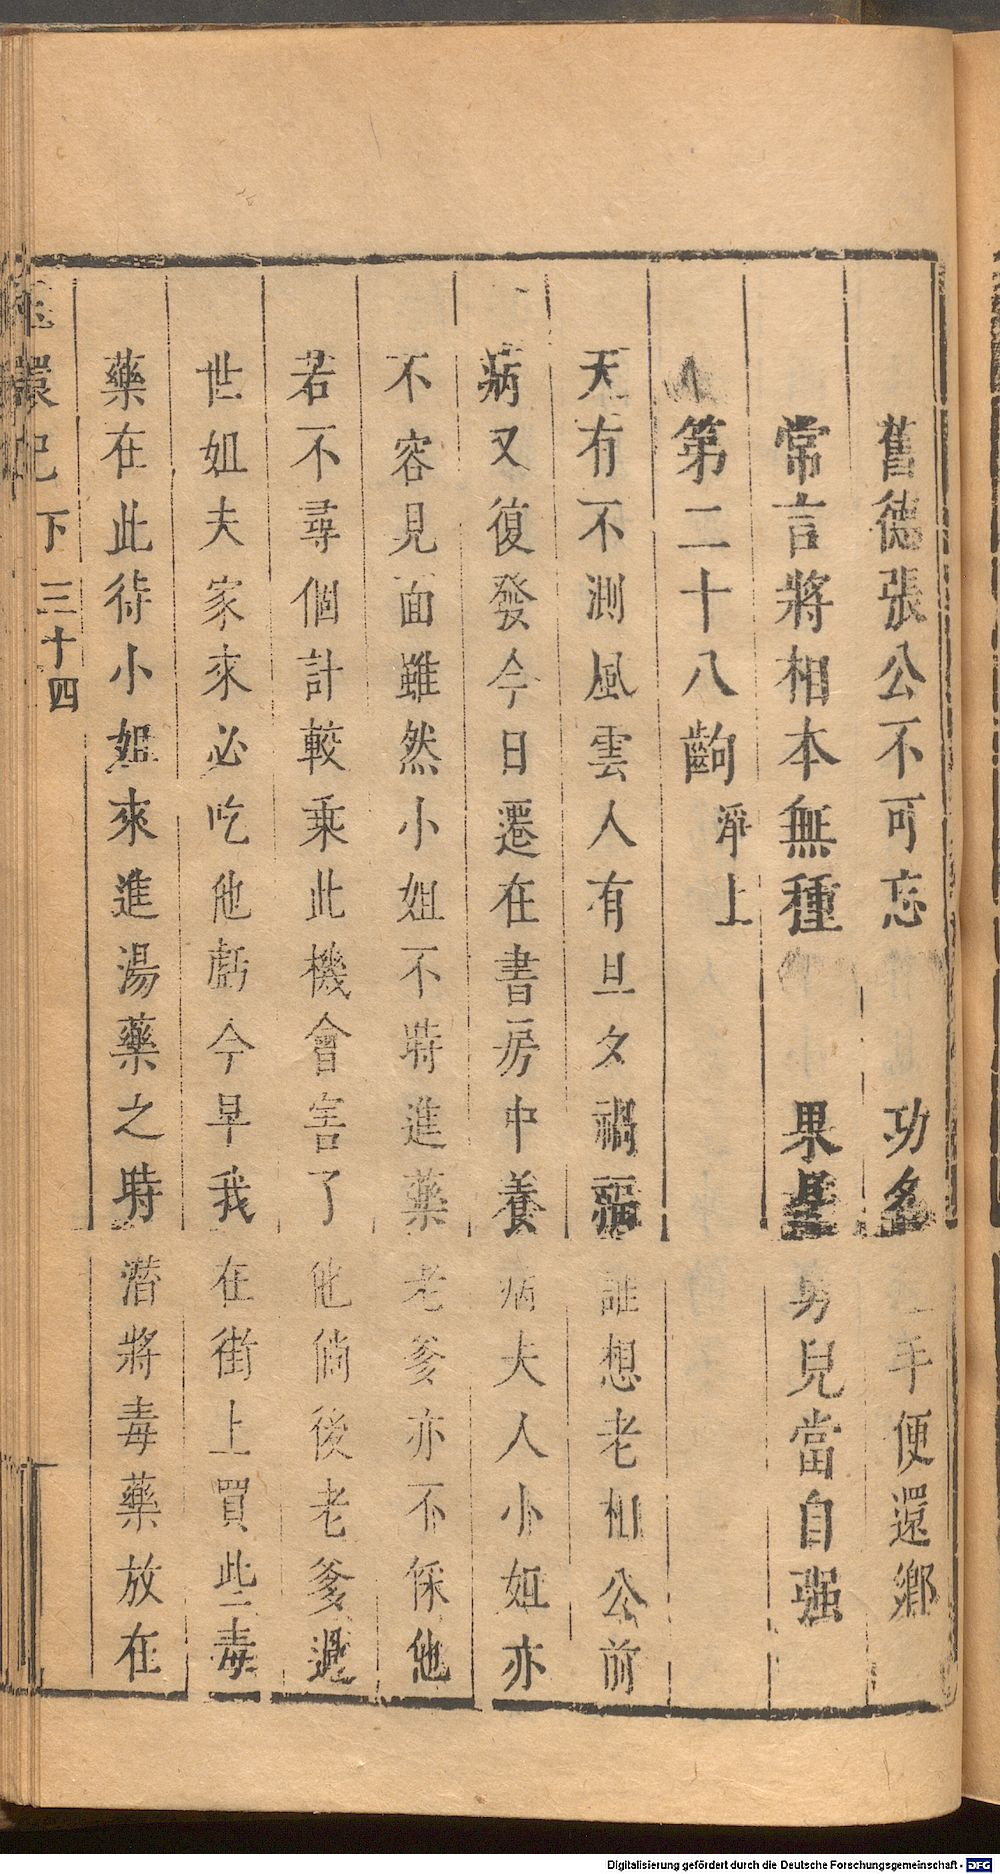 舊德張公不可忘　功名　手便還鄉
常言將相本無種　果是男兒當自强
第二十八齣 淨上
天有不測風雲人有旦夕禍福誰想老相公前
病又復發今日遷在書房中養病夫人小姐亦
不容見面雖然小姐不時進藥老爹亦不保他
若不尋個計較乘此機會害了他倘後老爹過
世姐夫家來必吃他虧今早我在街上買些毒
藥在此待小姐來進湯藥之時潛將毒藥放在
環記 下 三十四
Digitalisierung gefördert durch die Deutsche Forschungsgemeinschaft - DFG